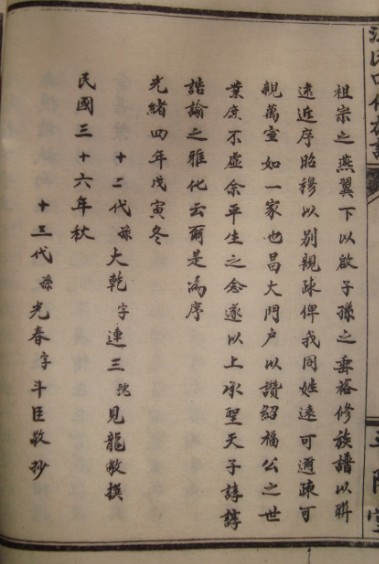 祖宗之燕翼下以啟子孫之垂裕修族譜以聯
遠近序昭穆以别親疎俾我同姓遠可邇疎可
親萬室如一家也昌大門户以讚紹福公之世
業庶不虛余平生之念遂以上承聖天子諄諄
誥諭之雅化云爾是為序
光緒四年戊寅冬
十二代孫大乾字連三號見龍敬撰
民國三十六年秋
十三代孫光春字斗臣敬抄